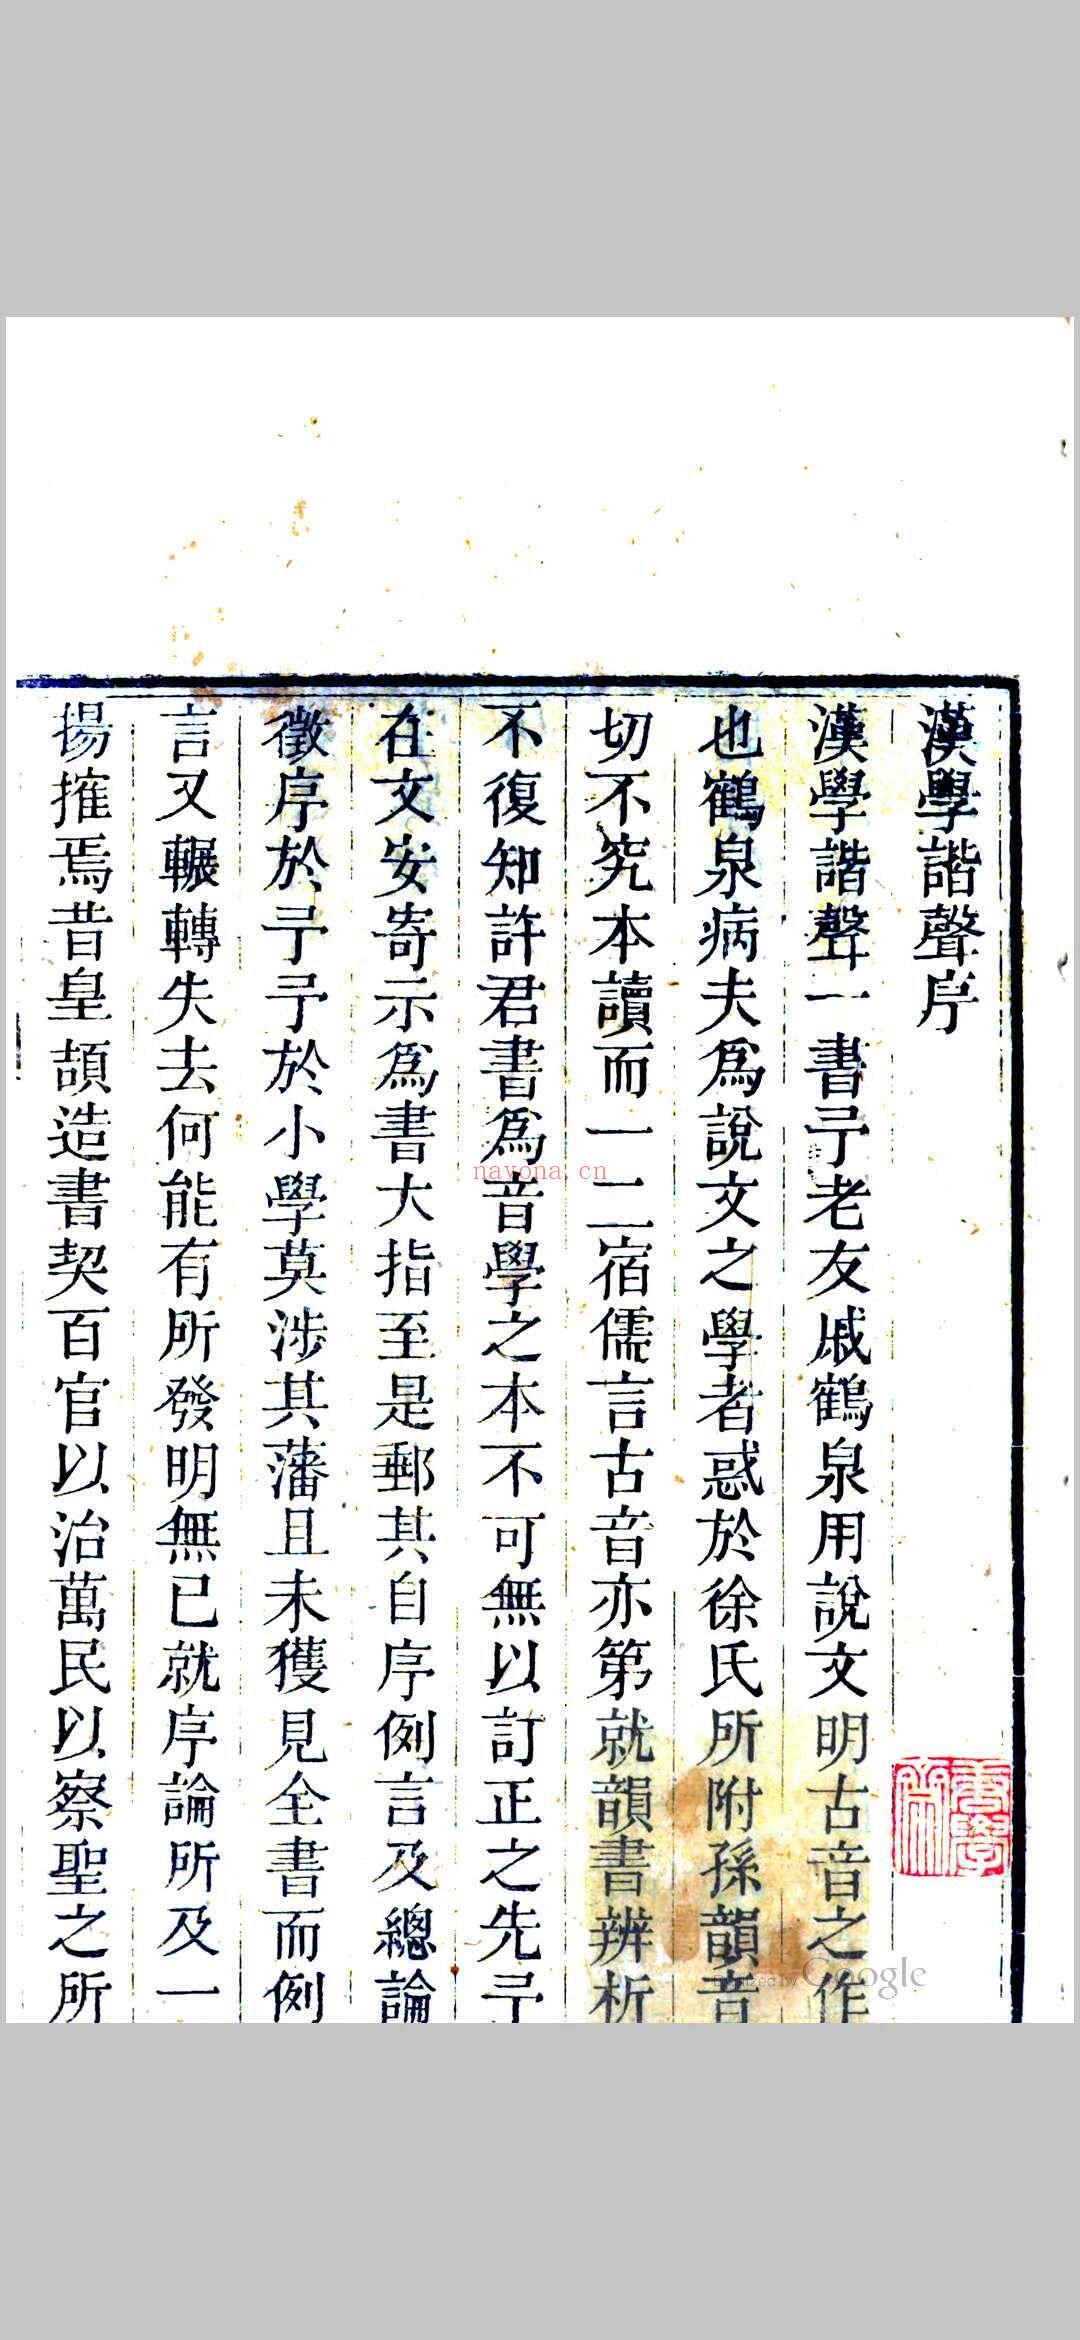 漢學諧聲序
漢學諧聲一書予老友戚鶴泉用說文明古音之作
也鶴泉病夫爲說文之學者惑於徐氏所附孫韻音
切不究本讀而一二宿儒言古音亦第就韻書辨析
不復知許君書爲音學之本不可無以訂正之先予
在文安寄示爲書大指至是郵其自序例言及總論
徵序於予予於小學莫涉其藩且未獲見全書而例
言又輾轉失去何能有所發明無已就序論所及一
揚搉焉昔皇頡造書契百官以治萬民以察聖之所
nayona.cn
Digitized by Google